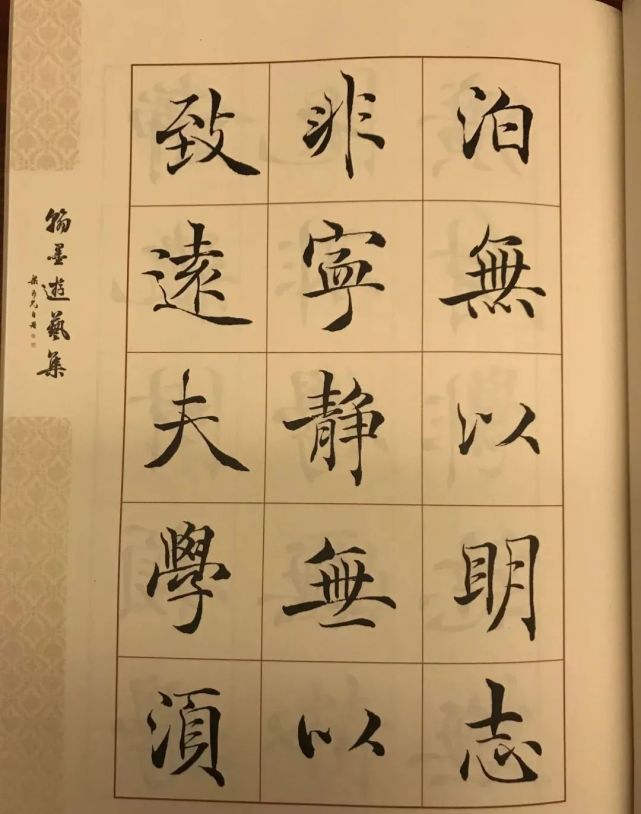 泊無以明志
非寧静無以
致遠夫學湏
翰墨遊藝集